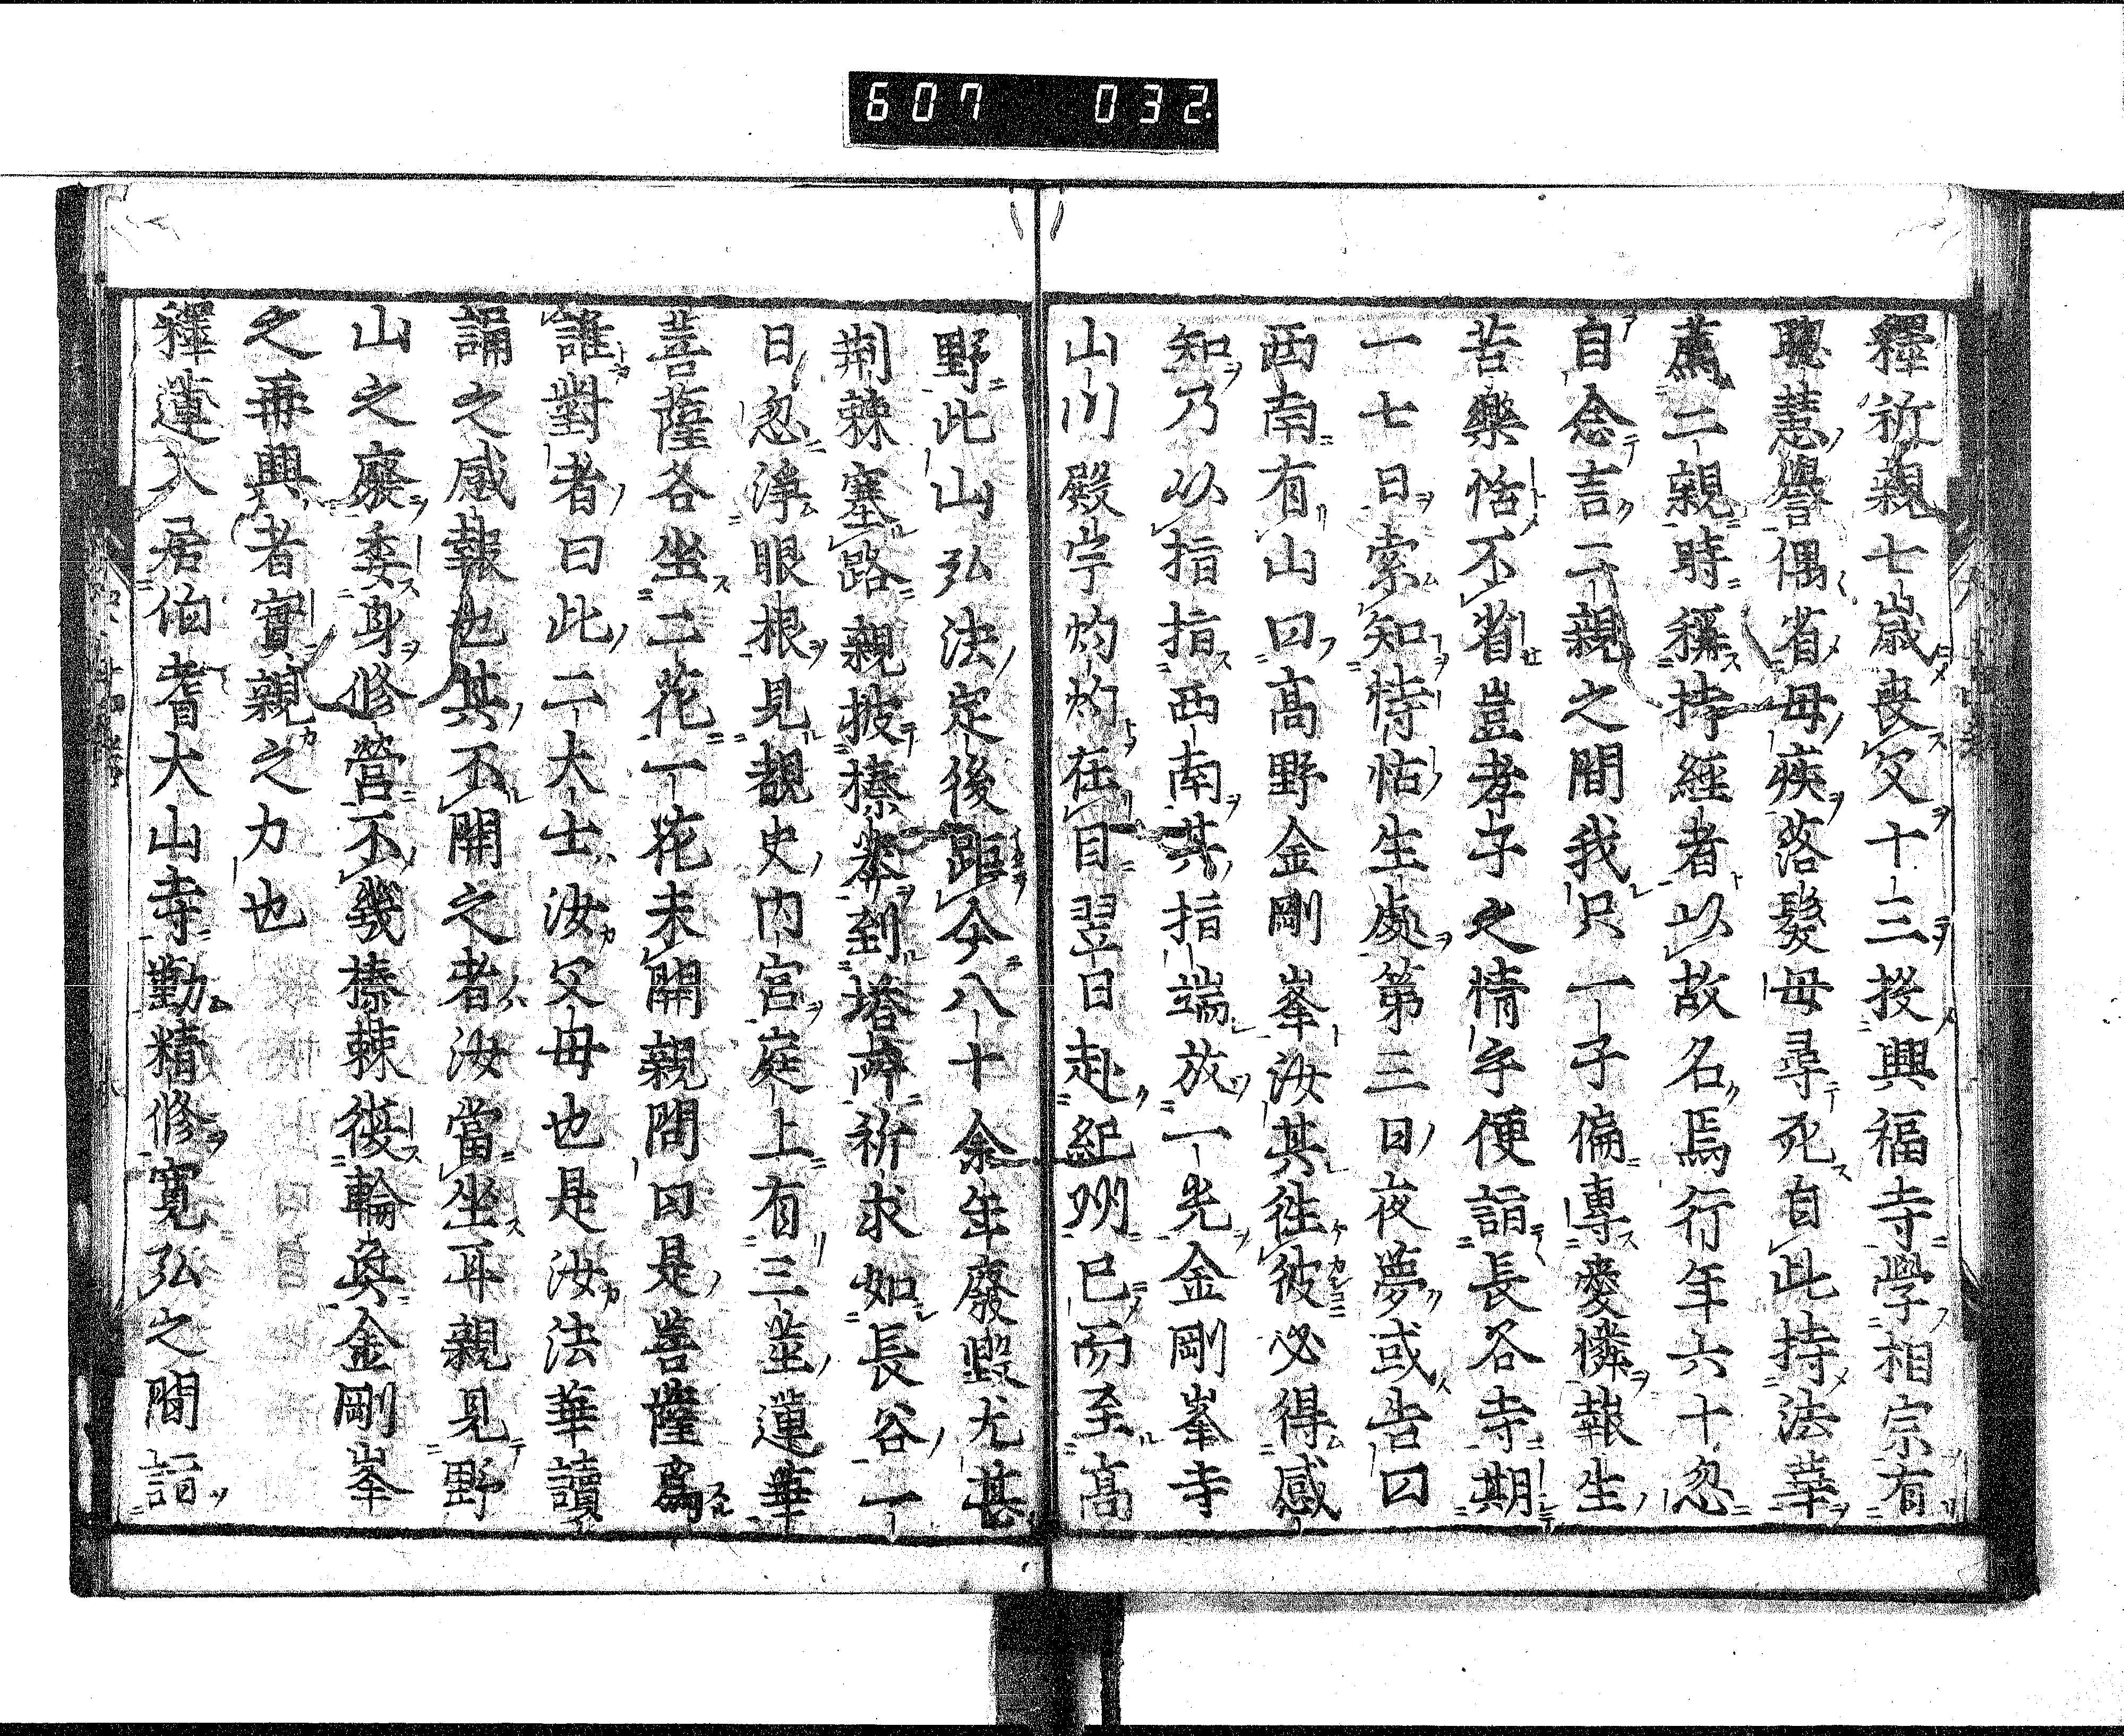 607 032
釋祈親七歳喪父十三投興福寺學相宗有
聰慧譽偶省母疾落髮母尋死自此持法華
薦二親時稱持經者以故名焉行年六十忽
自念言二親之間我只一子偏專愛憐報生
苦樂恬不省豈孝子之情乎便詣長谷寺期
一七日索知恃怙生處第三日夜夢或告曰
西南有山曰高野金剛峯汝其徃彼必得感
知乃以指指西南其指端放一光金剛峯寺
山川殿宇灼灼在目翌日赴紀州已而至高
野此山弘法定後距今八十余年廢毀尤甚
荊棘塞路親披榛莽到塔廟祈求如長谷一
日忽淨眼根見覩史内宮庭上有三莖蓮華
菩薩各坐二花一花未開親問曰是菩薩爲
誰對者曰此二大士汝父母也是汝法華讀
誦之感報也其不開之者汝當坐耳親見野
山之廢委身修營不幾榛棘復輪奐金剛峯
之再興者實親之力也
釋蓮入居伯耆大山寺勤精修寛弘之間詣